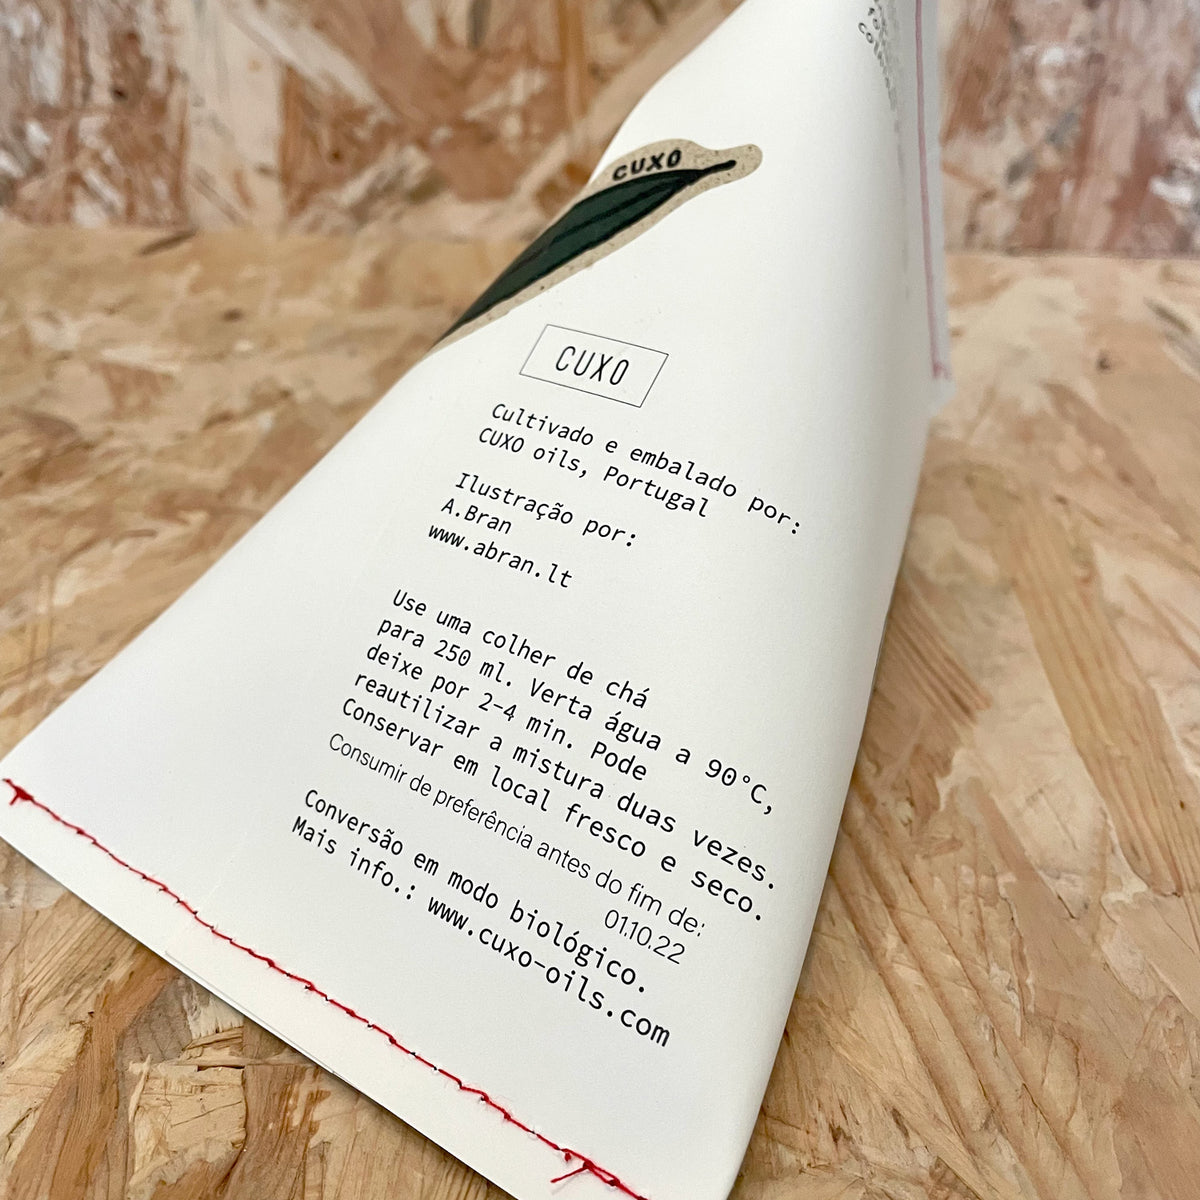 CUXO
CUXO
Cultivado e embalado por:
CUXO oils, Portugal
Ilustração por:
A.Bran
www.abran.lt
Use uma colher de chá
para 250 ml. Verta água a 90°C,
deixe por 2-4 min. Pode
reautilizar a mistura duas vezes.
Conservar em local fresco e seco.
Consumir de preferência antes do fim de:
01.10.22
Conversão em modo biológico.
Mais info.: www.cuxo-oils.com